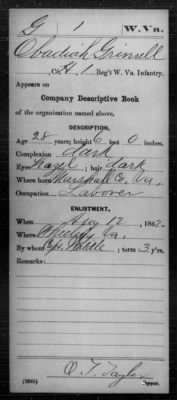 G | 1 | W. Va.
Obadiah Grinnell
Co. A, 1 Reg't W. Va. Infantry.
Appears on
Company Descriptive Book
of the organization named above.
DESCRIPTION.
Age 28 years; height 6 feet 0 inches.
Complexion dark
Eyes Hazel; hair dark
Where born Marshall Co, Va.
Occupation Laborer
ENLISTMENT.
When Aug 12, 1862.
Where Wheeling, Va.
By whom Cpt.; term 3 y'rs.
Remarks:
O. T. Taylor
Copyist.